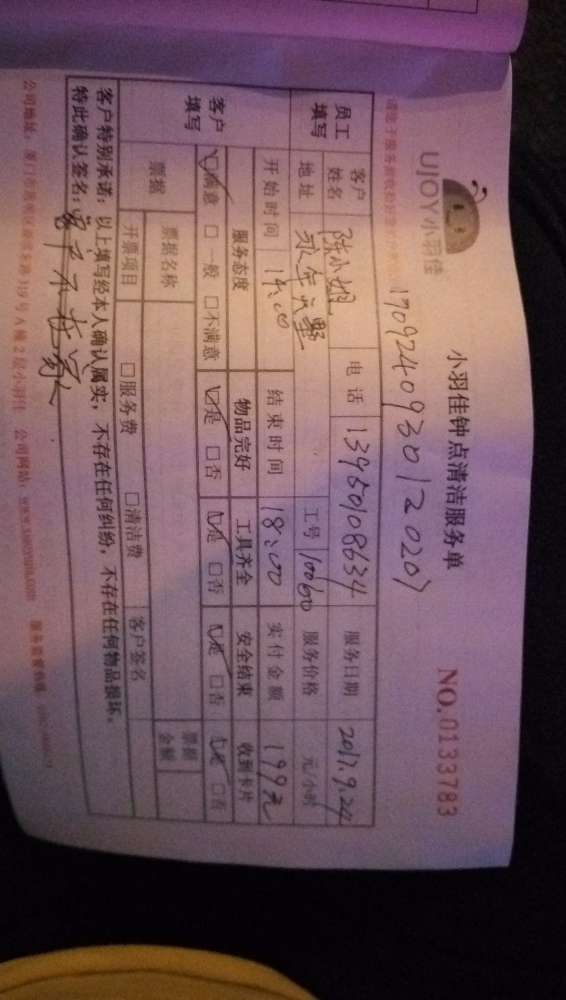 UJOY小羽佳
小羽佳钟点清洁服务单
NO.0133783
1709240930120207
员工填写
客户姓名 陈小姐 电话 13950108634 服务日期 2017.9.24
地址 工号 10060 服务价格 元/小时
开始时间 14:00 结束时间 18:00 实付金额 199元
客户填写
服务态度 物品完好 工具齐全 安全结束 收到卡片
☑满意 □一般 □不满意 ☑是 □否 ☑是 □否 ☑是 □否 ☑是 □否
票据 票据名称 票据金额
开票项目 □服务费 □清洁费 客户签名
客户特别承诺：以上填写经本人确认属实；不存在任何纠纷，不存在任何物品损坏，
特此确认签名：客户不在家